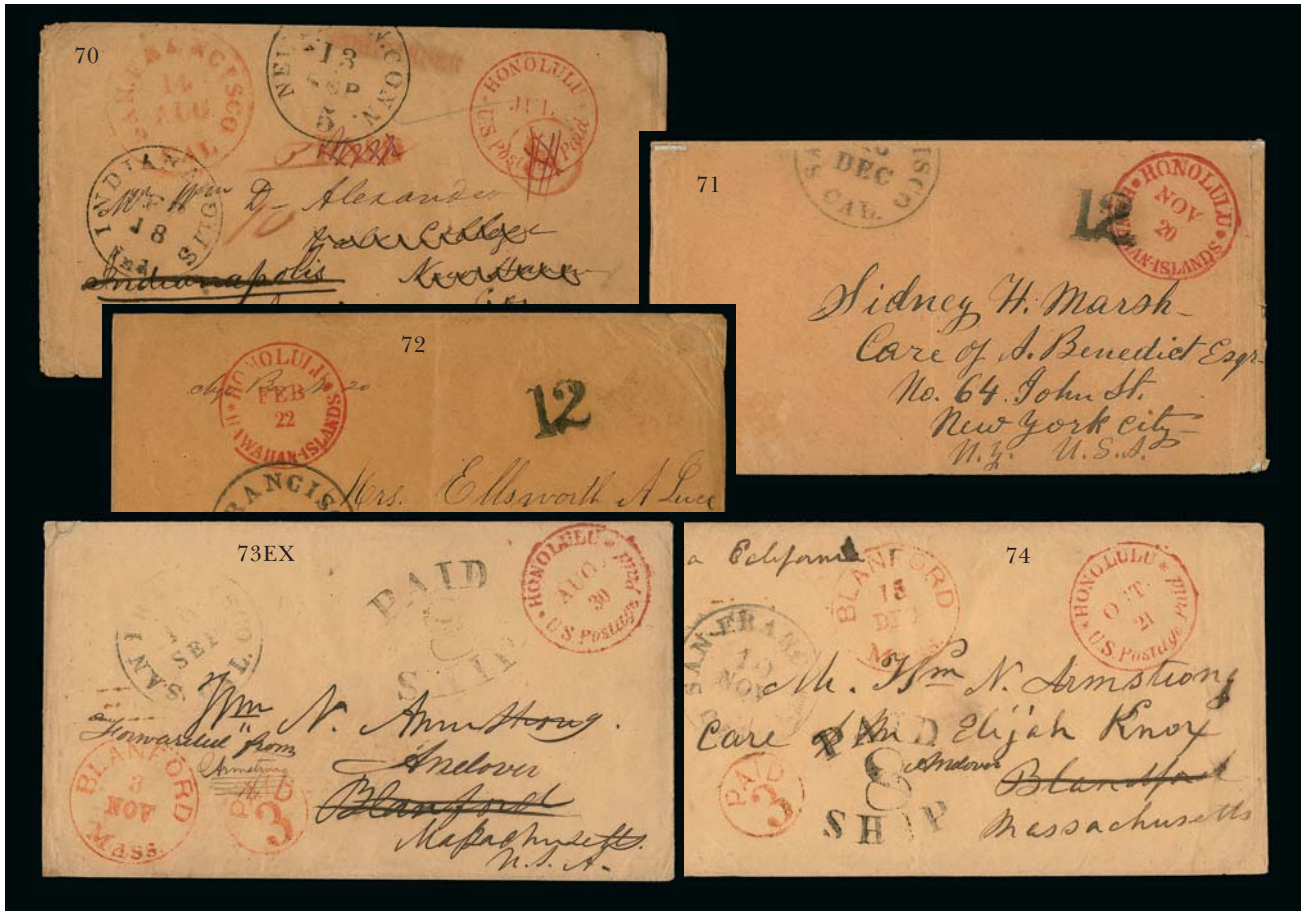 70
SAN FRANCISCO
14
AUG
CAL
NEW HAVEN CONN.
13
SEP
5
HONOLULU
JUL
U.S. Postage Paid
INDIANAPOLIS
18
IND
Mr Wm D. Alexander
10
Yale College
Indianapolis New Haven
71
DEC
CAL.
12
HONOLULU
NOV
20
HAWAIIAN-ISLANDS
Sidney H. Marsh
Care of A. Benedict Esqr
No. 64 John St.
New York City
N.Y. U.S.A.
72
HONOLULU
FEB
22
HAWAIIAN-ISLANDS
20
12
FRANCIS
Mrs. Ellsworth A Luce
73EX
SAN FRANCISCO
SEP
CAL.
PAID
8
SHIP
HONOLULU
AUG
30
U.S. Postage Paid
Wm N. Armstrong.
Forwarded from
Armstrong
Andover
BLANFORD
3
NOV
Mass
PAID
3
Blanford
Massachusetts.
U.S.A.
74
a California
BLANFORD
15
DEC
Mass
HONOLULU
OCT
21
U.S. Postage Paid
SAN FRANCISCO
NOV
Mr. Wm N. Armstrong
Care of Mr Elijah Knox
PAID
8
SHIP
PAID
3
Andover
Blandford
Massachusetts